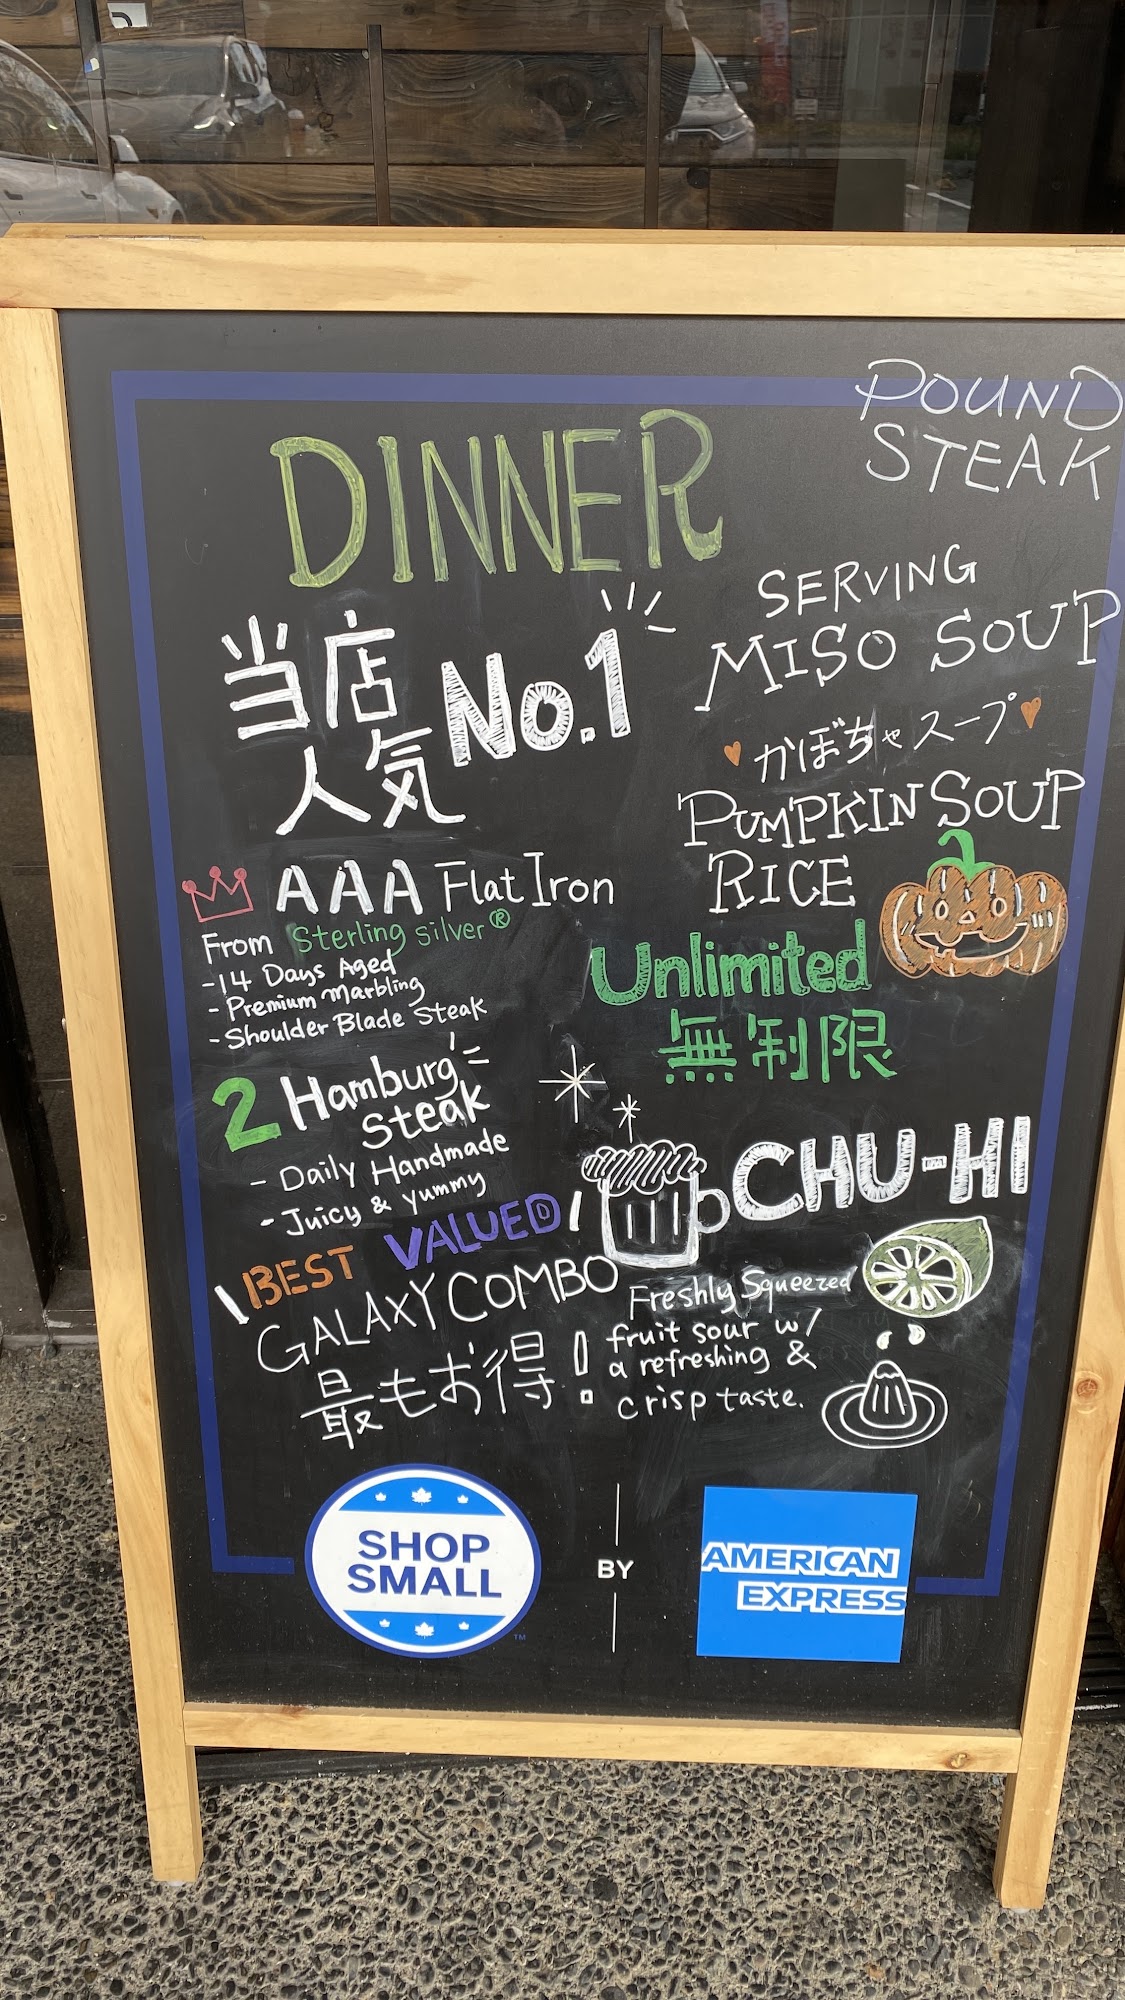 POUND
STEAK
DINNER
当店
人気 No.1
AAA Flat Iron
From Sterling Silver®
-14 Days Aged
- Premium Marbling
- Shoulder Blade Steak
2 Hamburg
Steak
- Daily Handmade
- Juicy & yummy
BEST VALUED
GALAXY COMBO
最もお得!
SERVING
MISO SOUP
かぼちゃスープ
PUMPKIN SOUP
RICE
Unlimited
無制限
CHU-HI
Freshly Squeezed
fruit sour w/
a refreshing &
crisp taste.
SHOP
SMALL
TM
BY
AMERICAN
EXPRESS